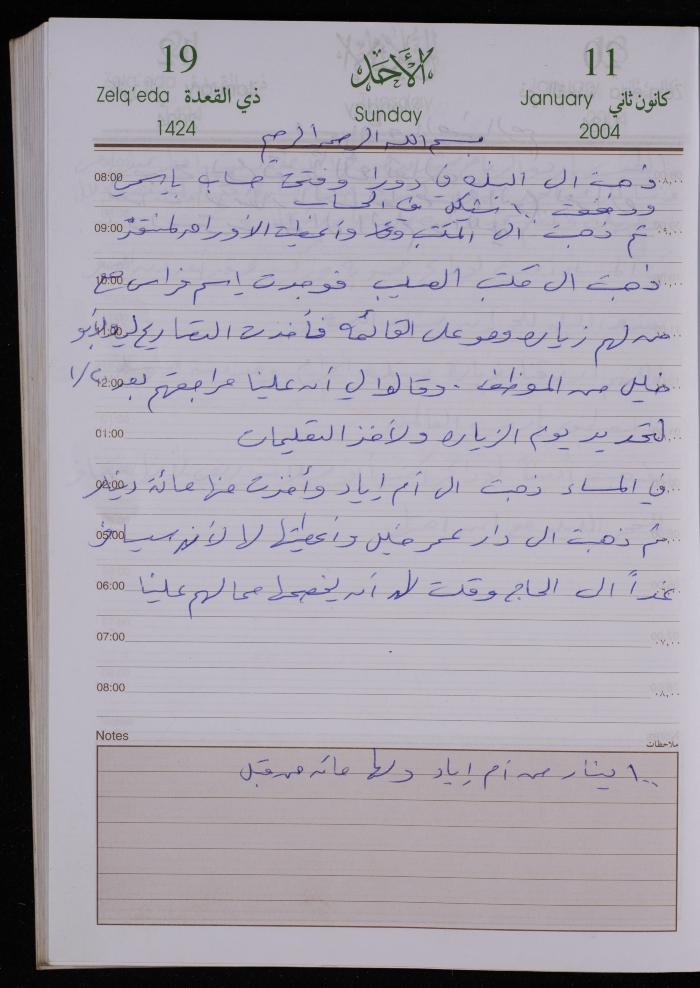 19 الأحد 11
Zelq'eda ذي القعدة Sunday January كانون ثاني
1424 2004
بسم الله الرحمن الرحيم
08:00 ذهبت الى البنك في دورا وفتحت حساب بإسمي
ووضعت ١٠٠ شيكل في الحساب
09:00 ثم ذهبت الى المكتب وأعطيت الأوراق
10:00 ذهبت الى مكتب الصليب فوجدت إسم فراس مع
11:00 من لهم زياره وهو على القائمة فأخذت التصاريح
12:00 خليل من الموظف . وقالوا لي أن علينا مراجعتهم بعد
01:00 لتحديد يوم الزياره ولأخذ التعليمات
في المساء ذهبت الى أم إياد وأخذت منها مائة دينار
05:00 ثم ذهبت الى دار عمر خليل وأعطيتها لها لأنه سيسافر
06:00 غداً الى الحاج وقلت له أن يخصمها مما لهم علينا
07:00
08:00
Notes ملاحظات
١٠٠ دينار من أم إياد ولها مائه من قبل